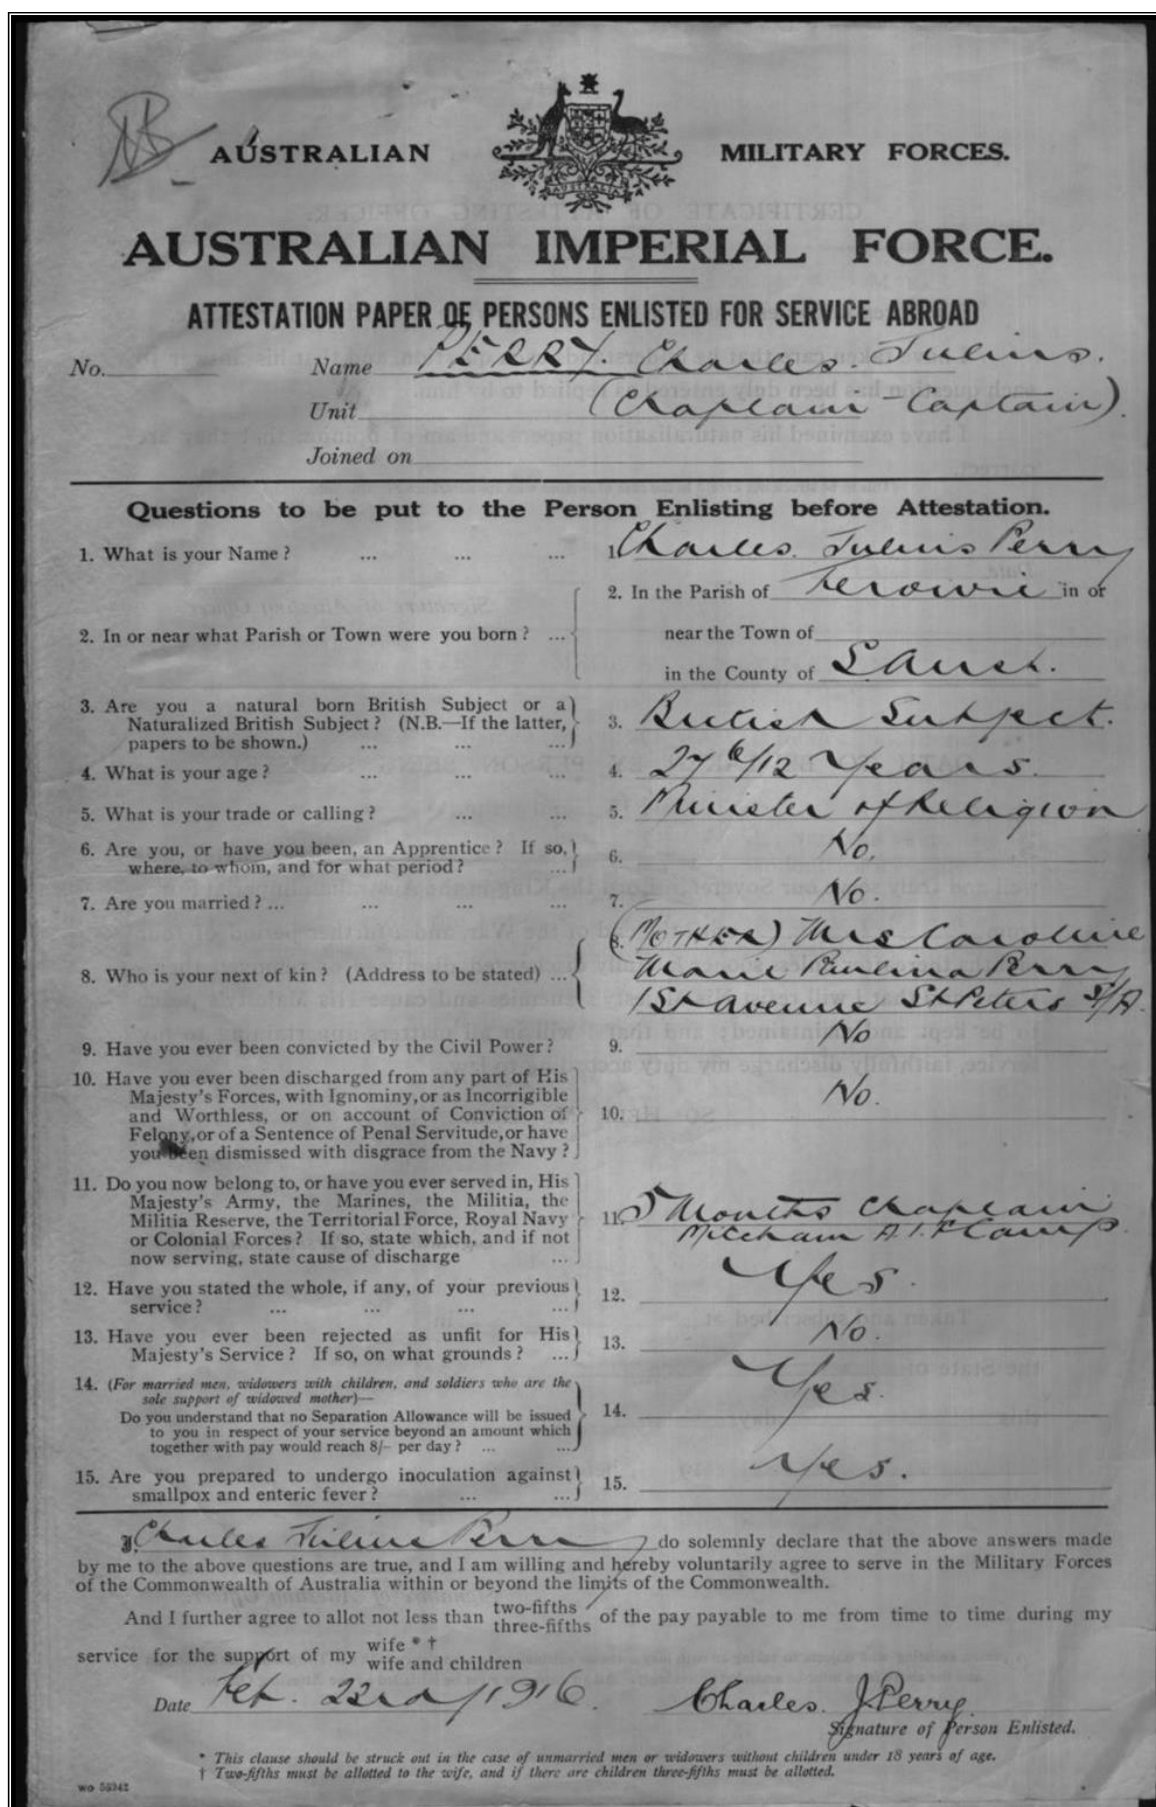 AUSTRALIAN MILITARY FORCES.
AUSTRALIA
AUSTRALIAN IMPERIAL FORCE.
ATTESTATION PAPER OF PERSONS ENLISTED FOR SERVICE ABROAD
No. Name PERRY. Charles. Julius.
Unit (Chaplain-Captain).
Joined on
Questions to be put to the Person Enlisting before Attestation.
1. What is your Name? ... ... ... 1. Charles. Julius Perry
2. In or near what Parish or Town were you born? ... 2. In the Parish of Terowie in or
near the Town of
in the County of S Aust.
3. Are you a natural born British Subject or a
Naturalized British Subject? (N.B.—If the latter,
papers to be shown.) ... ... ... 3. British Subject.
4. What is your age? ... ... ... 4. 27 6/12 Years.
5. What is your trade or calling? ... ... 5. Minister of Religion
6. Are you, or have you been, an Apprentice? If so,
where, to whom, and for what period? ... 6. No.
7. Are you married? ... ... ... ... 7. No.
8. Who is your next of kin? (Address to be stated) ... 8. (MOTHER) Mrs Caroline
Marie Paulina Perry
1st Avenue St Peters S/A.
9. Have you ever been convicted by the Civil Power? 9. No
10. Have you ever been discharged from any part of His
Majesty's Forces, with Ignominy, or as Incorrigible
and Worthless, or on account of Conviction of
Felony, or of a Sentence of Penal Servitude, or have
you been dismissed with disgrace from the Navy? 10. No.
11. Do you now belong to, or have you ever served in, His
Majesty's Army, the Marines, the Militia, the
Militia Reserve, the Territorial Force, Royal Navy
or Colonial Forces? If so, state which, and if not
now serving, state cause of discharge ... 11. 5 Months Chaplain
Mitcham A.I.F Camp.
12. Have you stated the whole, if any, of your previous
service? ... ... ... ... 12. Yes.
13. Have you ever been rejected as unfit for His
Majesty's Service? If so, on what grounds? ... 13. No.
14. (For married men, widowers with children, and soldiers who are the
sole support of widowed mother)—
Do you understand that no Separation Allowance will be issued
to you in respect of your service beyond an amount which
together with pay would reach 8/- per day? ... ... 14. Yes.
15. Are you prepared to undergo inoculation against
smallpox and enteric fever? ... ... 15. Yes.
I, Charles Julius Perry do solemnly declare that the above answers made
by me to the above questions are true, and I am willing and hereby voluntarily agree to serve in the Military Forces
of the Commonwealth of Australia within or beyond the limits of the Commonwealth.
And I further agree to allot not less than two-fifths three-fifths of the pay payable to me from time to time during my
service for the support of my wife * † wife and children
Date Feb. 22nd /1916. Charles. J. Perry.
Signature of Person Enlisted.
* This clause should be struck out in the case of unmarried men or widowers without children under 18 years of age.
† Two-fifths must be allotted to the wife, and if there are children three-fifths must be allotted.